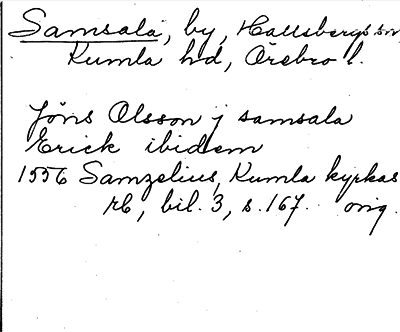 Samsala, by, Hallsbergs sn,
Kumla hd, Örebro l.
Jöns Olsson j samsala
Erick ibidem
1556 Samzelius, Kumla kyrkas
rb, bil. 3, s. 167. orig.